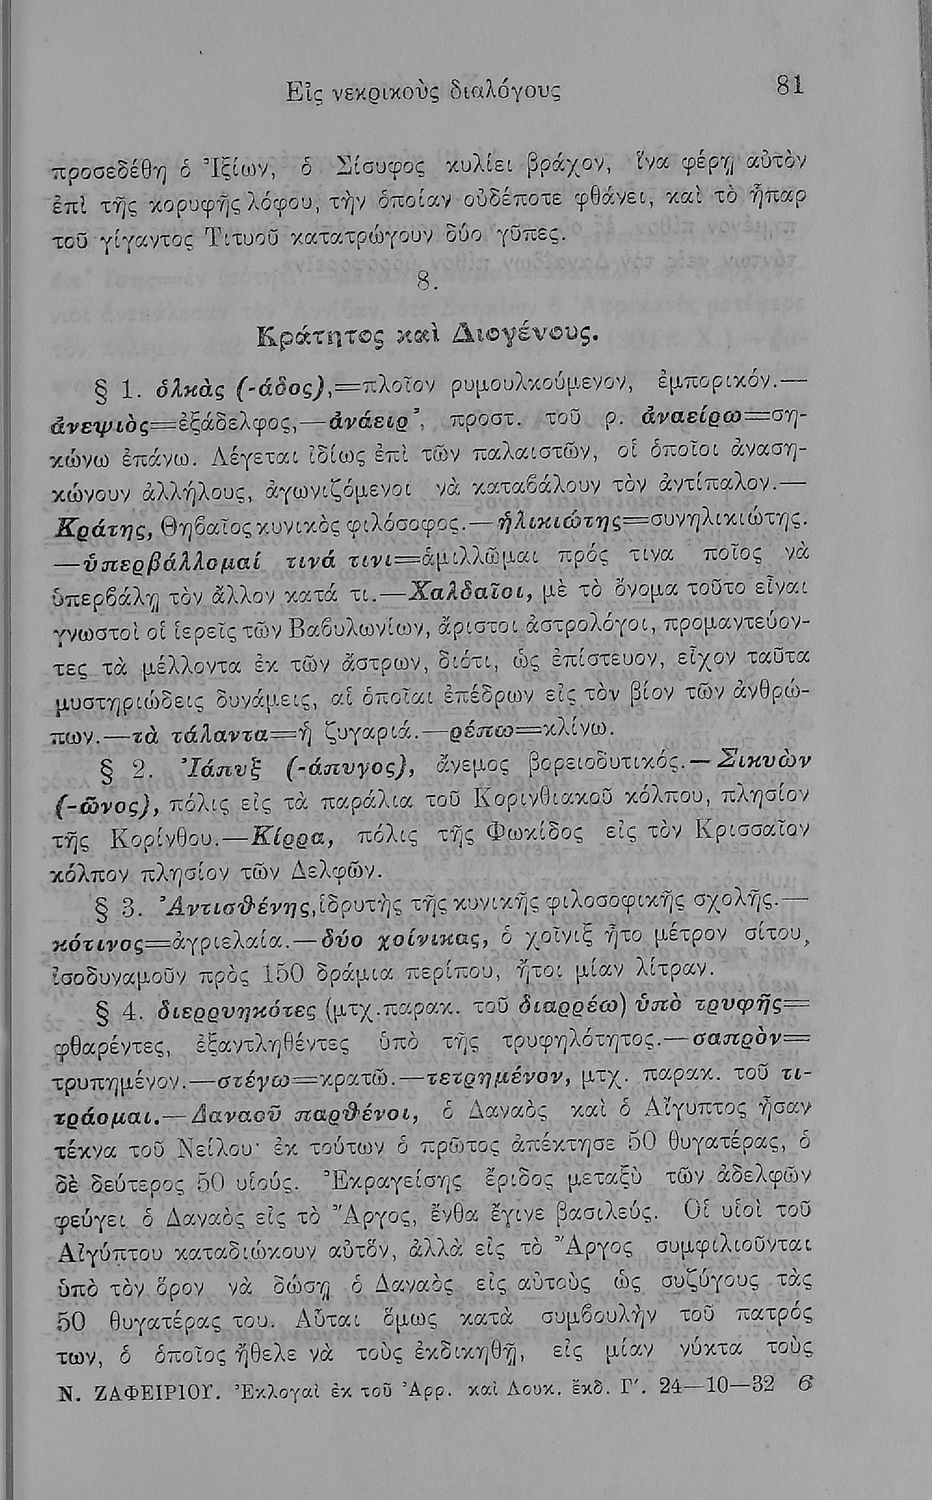 Εἰς νεκρικοὺς διαλόγους 81
προσεδέθη ὁ Ἰξίων, ὁ Σίσυφος κυλίει βράχον, ἵνα φέρῃ αὐτὸν
ἐπὶ τῆς κορυφῆς λόφου, τὴν ὁποίαν οὐδέποτε φθάνει, καὶ τὸ ἧπαρ
τοῦ γίγαντος Τιτυοῦ κατατρώγουν δύο γῦπες.
8.
Κράτητος καὶ Διογένους.
§ 1. ὁλκὰς (-άδος),=πλοῖον ρυμουλκούμενον, ἐμπορικόν.—
ἀνεψιὸς=ἐξάδελφος,—ἀνάειρ’, προστ. τοῦ ρ. ἀναείρω=ση-
κώνω ἐπάνω. Λέγεται ἰδίως ἐπὶ τῶν παλαιστῶν, οἱ ὁποῖοι ἀναση-
κώνουν ἀλλήλους, ἀγωνιζόμενοι νὰ καταβάλουν τὸν ἀντίπαλον.—
Κράτης, Θηβαῖος κυνικὸς φιλόσοφος.—ἡλικιώτης=συνηλικιώτης.
—ὑπερβάλλομαί τινά τινι=ἁμιλλῶμαι πρός τινα ποῖος νὰ
ὑπερβάλῃ τὸν ἄλλον κατά τι.—Χαλδαῖοι, μὲ τὸ ὄνομα τοῦτο εἶναι
γνωστοὶ οἱ ἱερεῖς τῶν Βαβυλωνίων, ἄριστοι ἀστρολόγοι, προμαντεύον-
τες τὰ μέλλοντα ἐκ τῶν ἄστρων, διότι, ὡς ἐπίστευον, εἶχον ταῦτα
μυστηριώδεις δυνάμεις, αἱ ὁποῖαι ἐπέδρων εἰς τὸν βίον τῶν ἀνθρώ-
πων.—τὰ τάλαντα=ἡ ζυγαριά.—ρέπω=κλίνω.
§ 2. Ἰάπυξ (-άπυγος), ἄνεμος βορειοδυτικός.—Σικυὼν
(-ῶνος), πόλις εἰς τὰ παράλια τοῦ Κορινθιακοῦ κόλπου, πλησίον
τῆς Κορίνθου.—Κίρρα, πόλις τῆς Φωκίδος εἰς τὸν Κρισσαῖον
κόλπον πλησίον τῶν Δελφῶν.
§ 3. Ἀντισθένης, ἱδρυτὴς τῆς κυνικῆς φιλοσοφικῆς σχολῆς.—
κότινος=ἀγριελαία.—δύο χοίνικας, ὁ χοῖνιξ ἦτο μέτρον σίτου,
ἰσοδυναμοῦν πρὸς 150 δράμια περίπου, ἤτοι μίαν λίτραν.
§ 4. διερρυηκότες (μτχ. παρακ. τοῦ διαρρέω) ὑπὸ τρυφῆς=
φθαρέντες, ἐξαντληθέντες ὑπὸ τῆς τρυφηλότητος.—σαπρὸν=
τρυπημένον.—στέγω=κρατῶ.—τετρημένον, μτχ. παρακ. τοῦ τι-
τράομαι.—Δαναοῦ παρθένοι, ὁ Δαναὸς καὶ ὁ Αἴγυπτος ἦσαν
τέκνα τοῦ Νείλου· ἐκ τούτων ὁ πρῶτος ἀπέκτησε 50 θυγατέρας, ὁ
δὲ δεύτερος 50 υἱούς. Ἐκραγείσης ἔριδος μεταξὺ τῶν ἀδελφῶν
φεύγει ὁ Δαναὸς εἰς τὸ Ἄργος, ἔνθα ἔγινε βασιλεύς. Οἱ υἱοὶ τοῦ
Αἰγύπτου καταδιώκουν αὐτὸν, ἀλλὰ εἰς τὸ Ἄργος συμφιλιοῦνται
ὑπὸ τὸν ὅρον νὰ δώσῃ ὁ Δαναὸς εἰς αὐτοὺς ὡς συζύγους τὰς
50 θυγατέρας του. Αὗται ὅμως κατὰ συμβουλὴν τοῦ πατρός
των, ὁ ὁποῖος ἤθελε νὰ τοὺς ἐκδικηθῇ, εἰς μίαν νύκτα τοὺς
Ν. ΖΑΦΕΙΡΙΟΥ. Ἐκλογαὶ ἐκ τοῦ Ἀρρ. καὶ Λουκ. ἔκδ. Γ′. 24—10—32 6